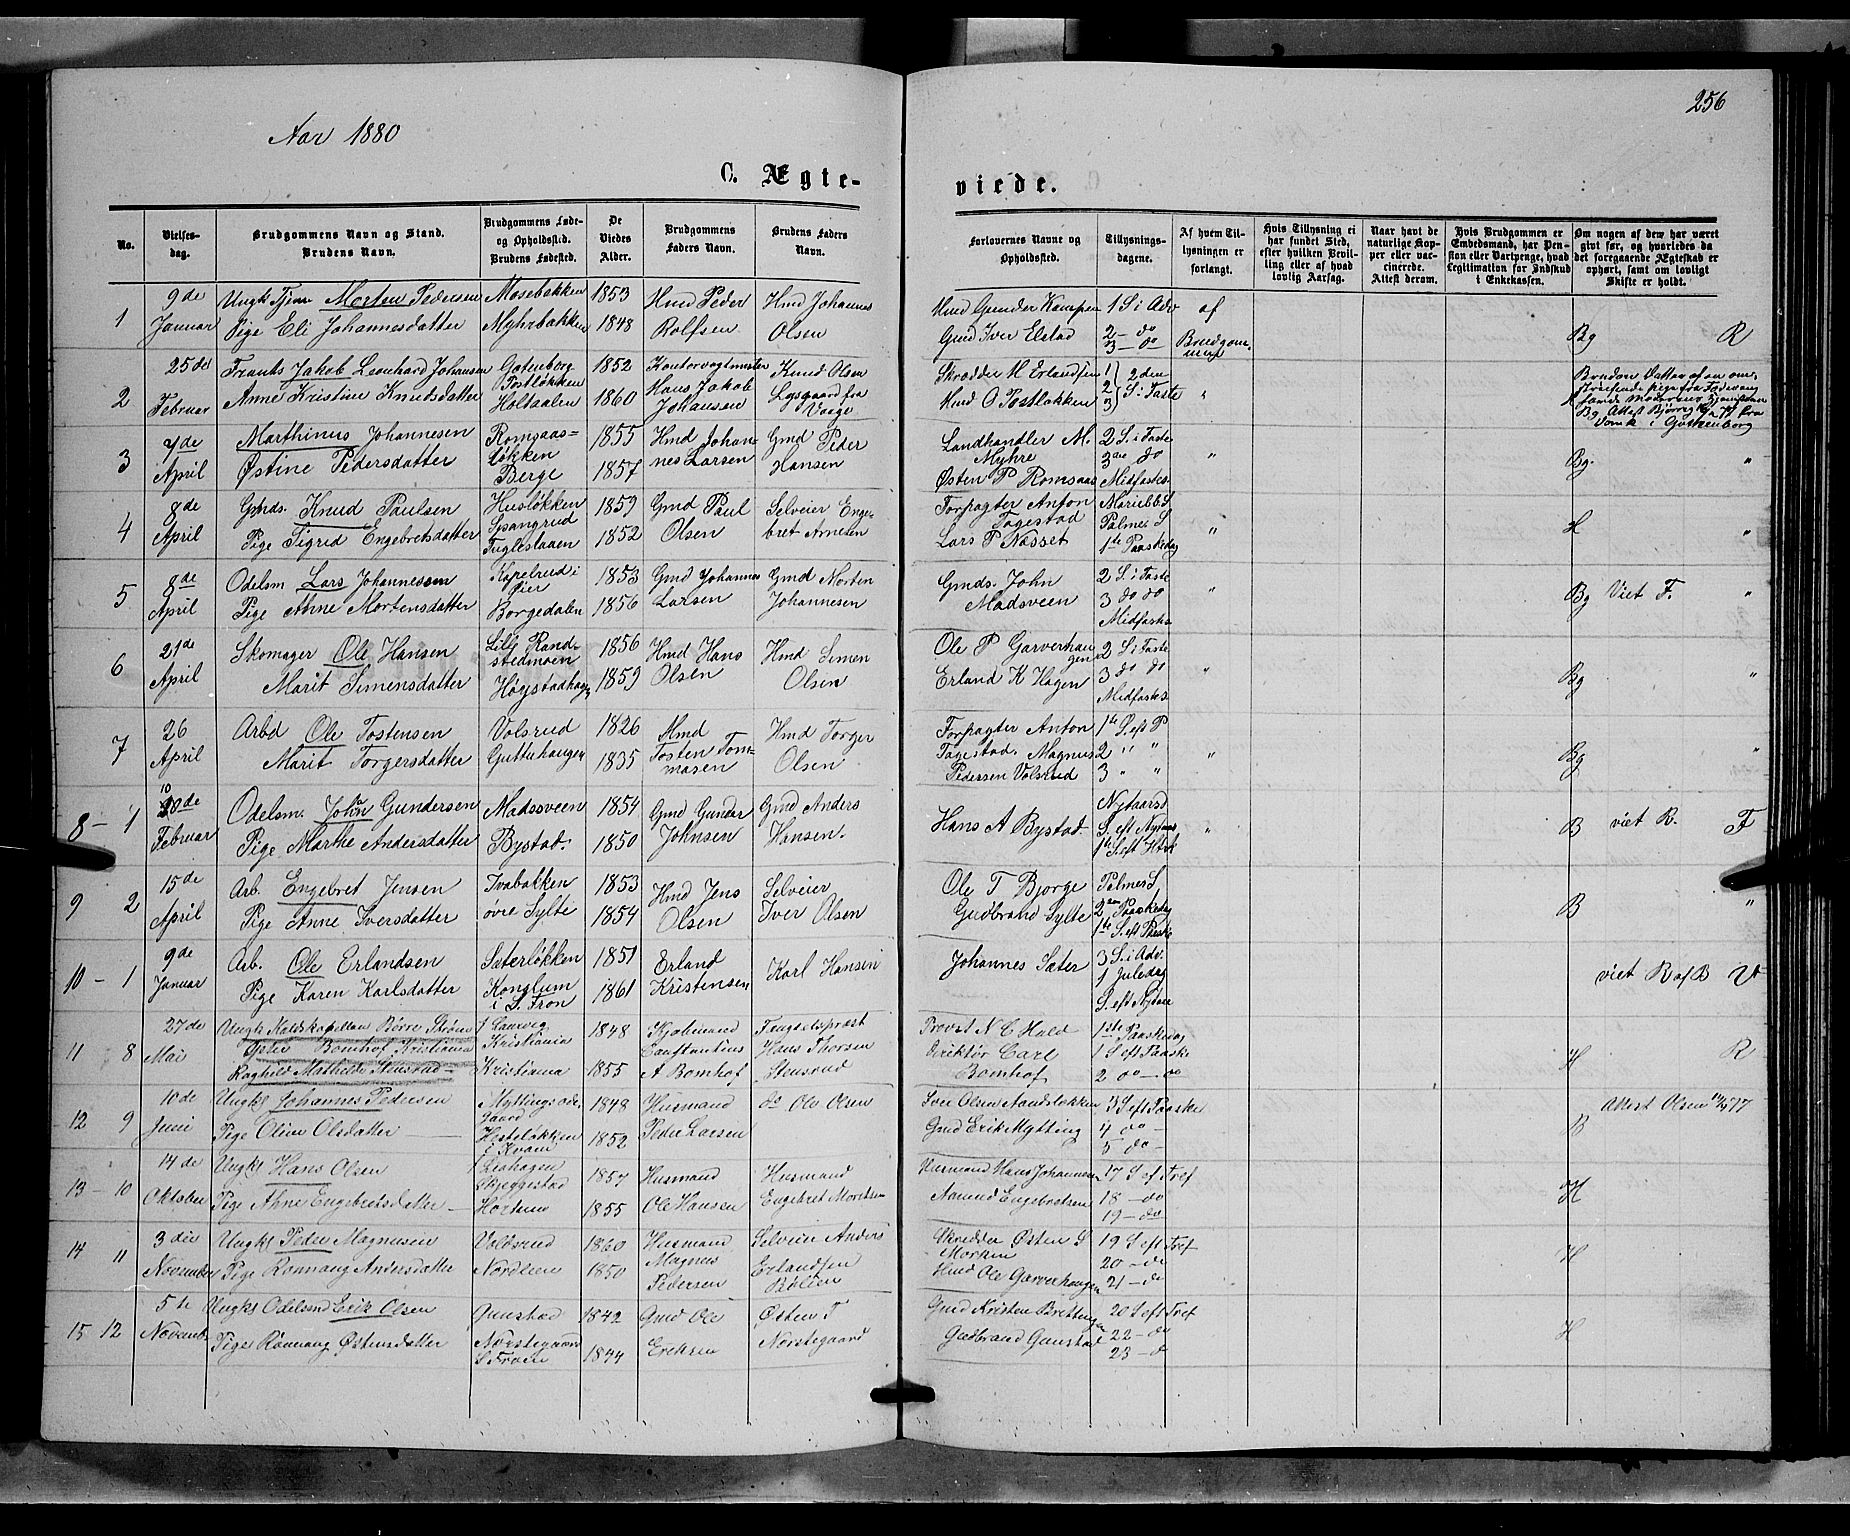 Aar 1880
256
C. Ægte-
viede.
No.
Vielses-
dag.
Brudgommens Navn og Stand.
Brudens Navn.
Brudgommens Føde-
og Opholdssted.
Brudens Fødested.
De
Viedes
Alder.
Brudgommens
Faders Navn.
Brudens Faders
Navn.
Forlovernes Navne og
Opholdssted.
Tillysnings-
dagene.
Af hvem Til-
lysningen er
forlangt.
Hvis Tillysning ei
har fundet Sted,
efter hvilken Bevil-
ling eller af hvad
lovlig Aarsag.
Naar havt de
naturlige Kop-
per eller vac-
cinerede.
Attest derom.
Hvis Brudgommen er
Embedsmand, har Pen-
sion eller Vartpenge, hvad
Legitimation for Indskud
i Enkekassen.
Om nogen af dem har været
givt før, og hvorledes da
det foregaaende Ægteskab er
ophørt, samt om lovligt
Skifte er holdt.
1
9de
Januar
Ungk Tjen Morten Pedersen
Pige Eli Johannesdatter
Mosebakken
Myhrbakken
1853
1848
Hmd Peder
Rolfsen
Hmd Johannes
Olsen
Hmd Gunder Kampen
Gmd Iver Elstad
1 S i Adv
2 — do
3 — do
af
Brudgom-
men
Bg
R
2
25de
Februar
Frants Jakob Leonhard Johansen
Anne Kristine Knutsdatter
Gøtenborg
Postløkken
Holtaalen
1852
1860
Kontorvagtmester
Hans Jakob
Johansen
Knud Olsen
Lysgaard fra
Vaage
Skrædder H Erlandsen
Hmd O Postløkken
1) 2den
2) S. i Faste
3)
"
3
7de
April
Marthinus Johannesen
Østine Pedersdatter
Romsaas-
løkken
Berge
1855
1857
Hmd Johan-
nes Larsen
Gmd Peder
Hansen
Landhandler M.
Myhre
Østen P Romsaas
2 S. i Faste
3de do
Midfastes.
"
Bg.
"
4
8de
April
Gmds. Knud Paulsen
Pige Sigrid Engebretsdatter
Husløkken
Sysangrud
Fugleslaaen
1859
1852
Gmd Paul
Olsen
Selveier Enge-
bret Arnesen
Forpagter Anton
Tagestad
Lars P Næsset
Mariæb. S
Palme S
1ste Paaskedag
"
H
"
5
8de
April
Odelsm Lars Johannessen
Pige Anne Mortensdatter
Kapelrud i
Øier
Borgedalen
1853
1856
Gmd Johannes
Larsen
Gmd Morten
Johannesen
Gmds. John
Madsveen
2 S. i Faste
3 do do
Midfastes.
"
Bg
Viet F.
"
6
21de
April
Skomager Ole Hansen
Marit Simensdatter
Lillj Rand-
stedmoen
Høystadhagen
1856
1859
Hmd Hans
Olsen
Hmd Simen
Olsen
Ole P Garverhau-
gen
Erland K Hagen
2 S i Faste
3 do do
Midfastes.
"
Bg
"
7
26
April
Arbd Ole Tostensen
Marit Torgersdatter
Volsrud
Guttuhaugen
1826
1835
Hmd
Tosten Tom-
masen
Hmd Torger
Olsen
Forpagter Anton
Tagestad. Magnus
Pedersen Volsrud
1te S. eft P
2 " "
3 " "
"
Bg
"
8 — 1
10
10de
Februar
Odelsm. John Gundersen
Pige Marthe Andersdatter
Madssveen
Bystad.
1854
1850
Gmd Gundar
Johnsen
Gmd Anders
Hansen.
Hans A Bystad
Nytaarsd
S. eft Nytaar
1te S. eft H3k
"
B
viet R.
F
9 2
15de
April
Arb. Engebret Jensen
Pige Anne Iversdatter
Ivabakken
øvre Sylte
1853
1854
Hmd Jens
Olsen
Selveier
Iver Olsen
Ole T Bjørge
Gudbrand Sylte
Palmes S,
2den Paaskedag
1ste S. eft Paaske
B
"
10 — 1
9de
Januar
Arb. Ole Erlandsen
Pige Karen Karlsdatter
Sæterløkken
Konglum
i S. Fron
1851
1861
Erland
Kristensen
Karl Hansen
Johannes Sæter
3 S. i Adv.
1 Juledag
S. eft Nytaar
viet R af B
11 8
27de
Mai
Ungk Kaldskapellan Børre Strøm
Bomhof Kristiania
Ragnhild Mathilde Stensrud
f Laurvig
Kristiania
Kristiania
1848
1855
Kjøbmand
Constantius
A Bomhof
Fengselsprest
Hans Thorsen
Stensrud
Provst N C Hald
Direktør Carl
Bomhof
1ste Paaskedag
1 S eft Paaske
2 do — do
H
R
12 9
10de
Juni
Ungk Johannes Pedersen
Pige Oline Olsdatter
Myttingsøde-
gaard
Hesteløkken
i Kvam
1848
1852
Husmand
Peder Larsen
do Ole Olsen
Iver Olsen Sandsløkken
Gmd Erik Mytting
3 S eft Paaske
4 do —
5 do —
B
Attest Olsen 77
13 — 10
14de
Oktober
Ungk Hans Olsen
Pige Anne Engebretsdatter
f Liahagen
Skeggestad
Hortuns
1857
1855
Husmand
Ole Hansen
Husmand
Engebret Mortensen
Husmand Hans Johannesen
Aamund Engebretsen
17 S eft Tref
18 — do
19 — do
H
14 11
3die
November
Ungk Peder Magnusen
Pige Rønnaug Andersdatter
Voldsrud
Nordlien
1860
1850
Husmand
Magnus
Pedersen
Selveier Anders
Erlandsen
Bølien
Skrædder Østen S
Morken
Hmd Ole Garverhaugen
19 S eft Tref
20 — do
21 — do
H
15 12
5te
Novemb.
Ungk Odelsmd Erik Olsen
Pige Rønnaug Østensdatter
Gunstad
Norstegaard
S Fron
1842
1844
Gmd Ole
Eriksen
Østen T
Norstegaard
Gmd Kristen Brettingen
Gudbrand Gunstad
20 S eft Tref
22 — do
23 — d
H